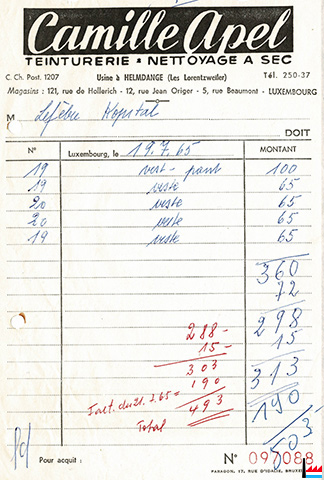 Camille Apel
TEINTURERIE * NETTOYAGE A SEC
C. Ch. Post. 1207 Usine à HELMDANGE (Les Lorentzweiler) Tél. 250-37
Magasins : 121, rue de Hollerich - 12, rue Jean Origer - 5, rue Beaumont - LUXEMBOURG
M Lefèbre Hopital
DOIT
N° Luxembourg, le 19.7.65 MONTANT
19 vest - pant 100
19 veste 65
20 veste 65
20 veste 65
19 veste 65
360
72
288- 298
15- 15
303 313
190 190
Fact. du 21.3.65= 493 503
Total
Pour acquit : N° 097088
PARAGON, 17, RUE D'IDALIE, BRUXEL